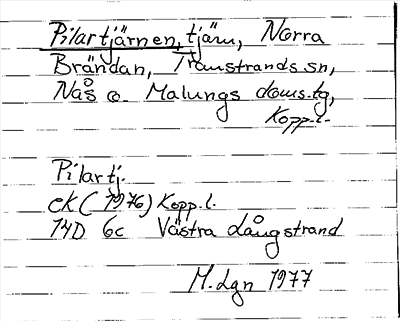 Pilartjärnen, tjärn, Norra
Brändan, Transtrands sn,
Nås o. Malungs doms.tg,
Kopp.l.
Pilartj.
ek (1976) Kopp.l.
14D 6c Västra Långstrand
M.Lgn 1977